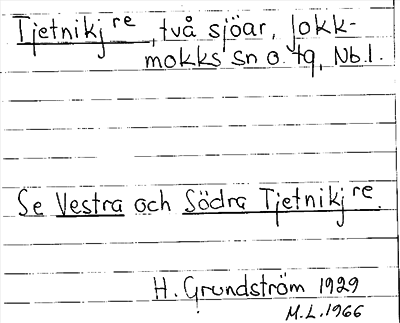 Tjetnikjre, två sjöar, Jokk-
mokks sn o. tg, Nb.l.
Se Vestra och Södra Tjetnikjre.
H. Grundström 1929
M.L. 1966